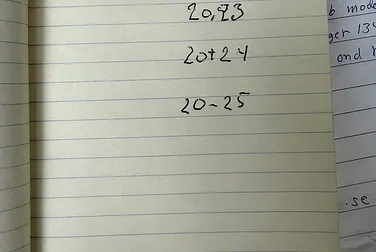 20,23
20+24
20-25
b mode
ger 134
and
.se